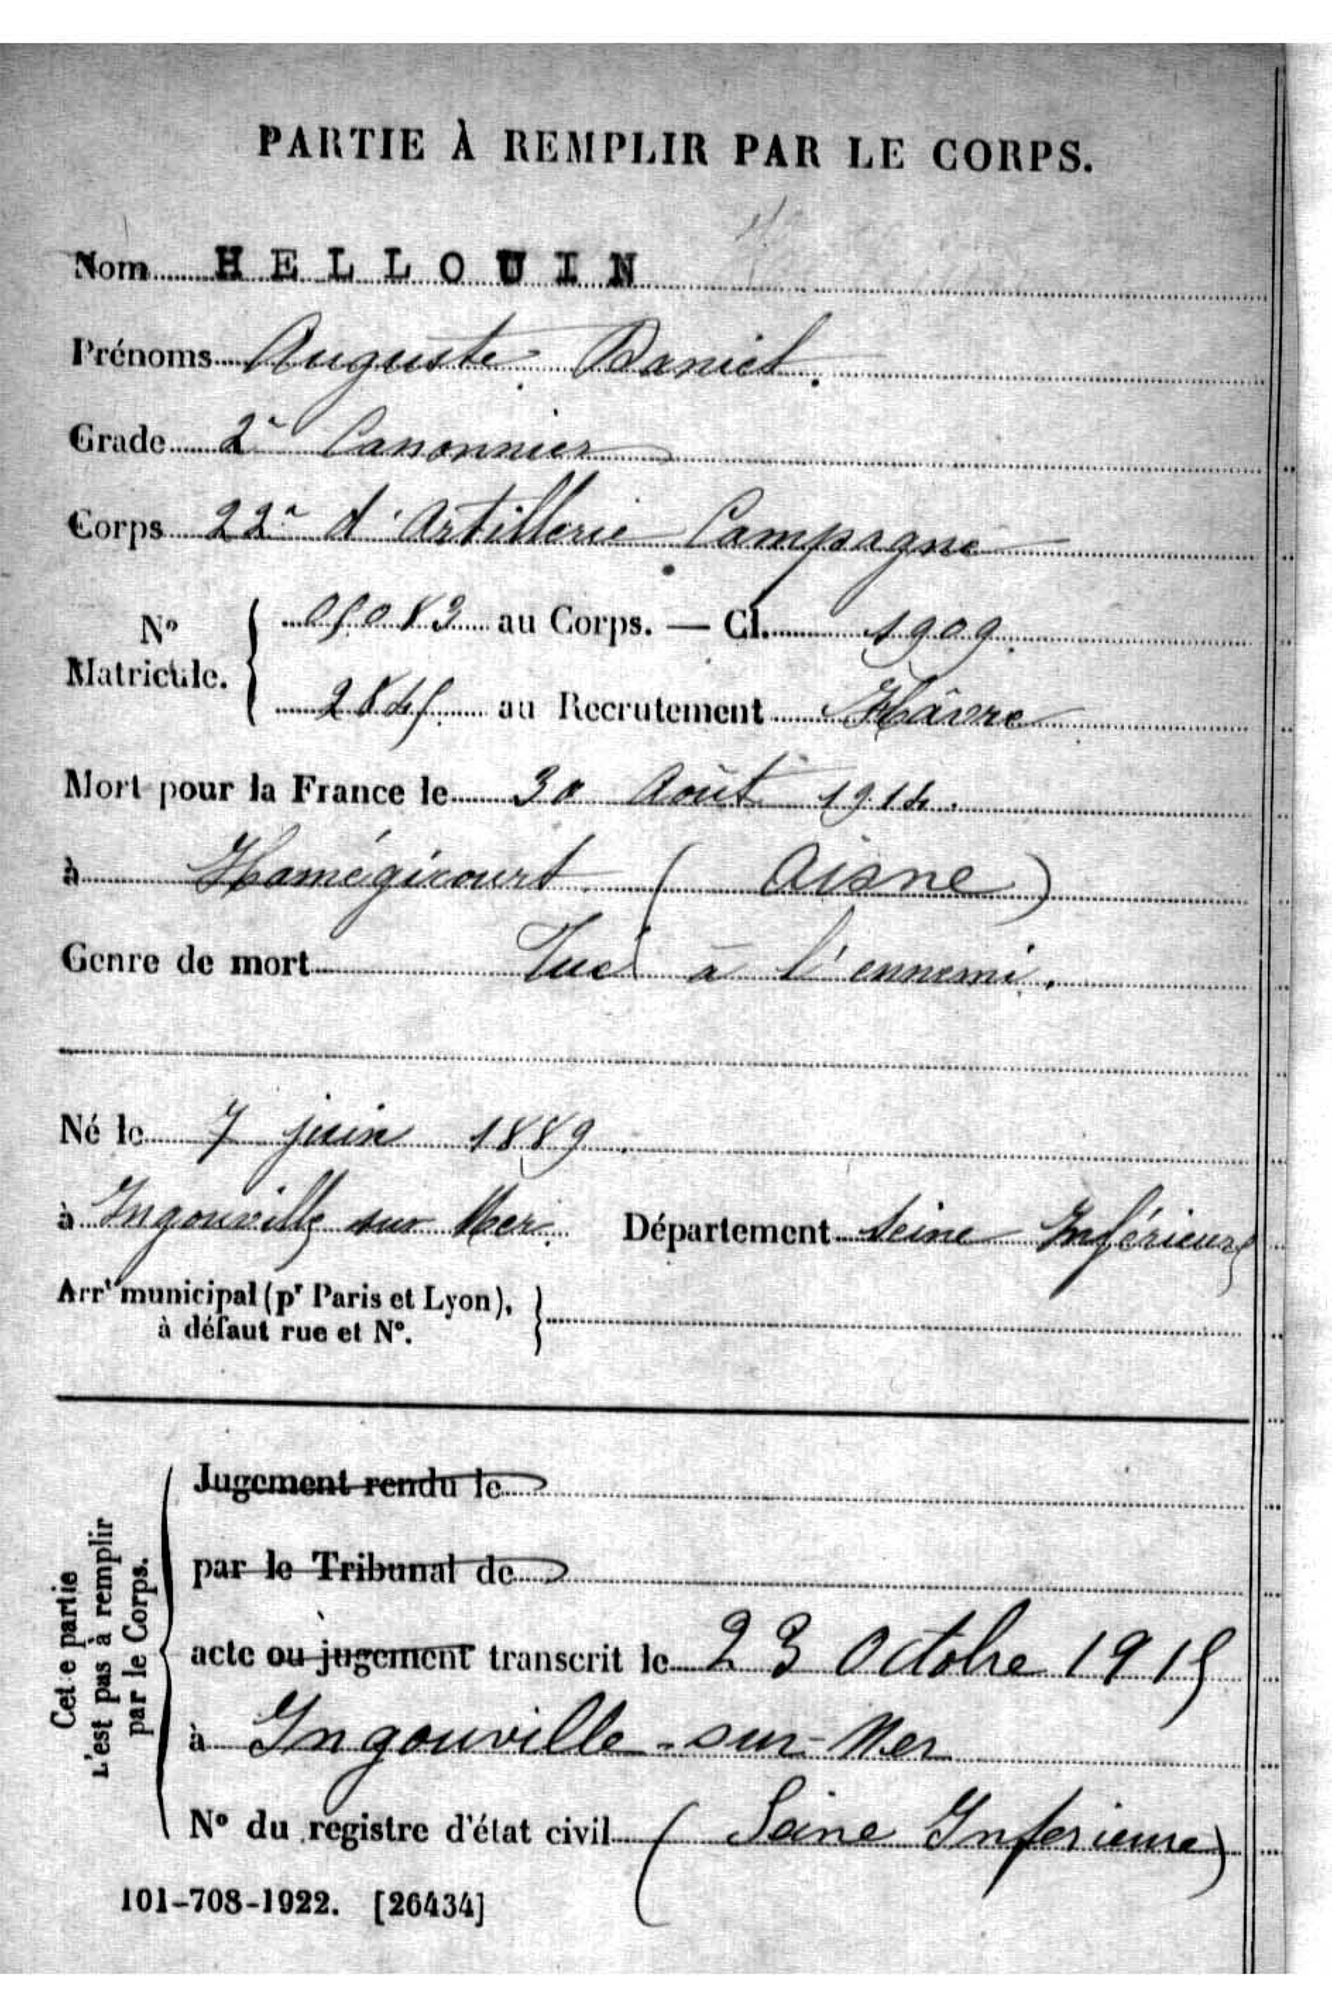 PARTIE À REMPLIR PAR LE CORPS.
Nom HELLOUIN
Prénoms Auguste Daniel.
Grade 2e Canonnier
Corps 22e d'Artillerie Campagne
No Matricule. 05083 au Corps. — Cl. 1909.
2845 au Recrutement Hâvre
Mort pour la France le 30 Août 1914.
à Hamégicourt (Aisne)
Genre de mort Tué à l'ennemi.
Né le 7 juin 1889
à Ingouville sur Mer. Département Seine Inférieure
Arrt municipal (pr Paris et Lyon),
à défaut rue et No.
Cette partie
n'est pas à remplir
par le Corps.
Jugement rendu le
par le Tribunal de
acte ou jugement transcrit le 23 Octobre 1915
à Ingouville-sur-Mer
No du registre d'état civil (Seine Inferieure)
101-708-1922. [26434]